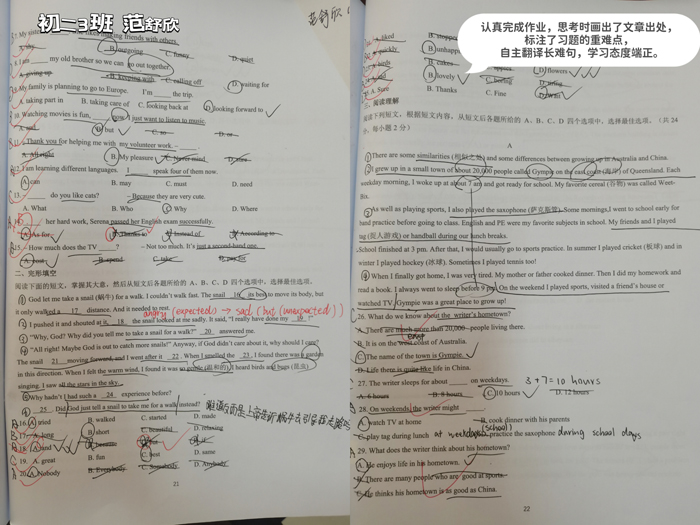 初二3班 范舒欣
范舒欣
认真完成作业，思考时画出了文章出处，
标注了习题的重难点，
自主翻译长难句，学习态度端正。
friends with others.
B. outgoing C. funny D. quiet
8. I am my old brother so we can go out together.
A. giving up B. keeping with C. calling off D. waiting for
My family is planning to go to Europe. I'm ____ the trip.
A. taking part in B. taking care of C. looking back at D. looking forward to
10. Watching movies is fun, ____ now I just want to listen to music.
B. but C. so D. or
11. Thank you for helping me with my volunteer work. –
A. All right B. My pleasure C. Never mind
12. I'm learning different languages. I ____ speak four of them now.
A. can B. may C. must D. need
13. – ____ do you like cats? – Because they are very cute.
A. What B. Who C. Why D. Where
her hard work, Serena passed her English exam successfully.
A. As for B. Thanks to C. Instead of D. According to
15. – How much does the TV ____? – Not too much. It's just a second-hand one.
A. cost B. spend C. take D. pay for
二、完形填空
阅读下面的短文，掌握其大意，然后从短文后各题所给的 A、B、C、D 四个选项中，选择最佳选项。
① God let me take a snail (蜗牛) for a walk. I couldn't walk fast. The snail 16 its best to move its body, but
it only walked a 17 distance. And it needed to rest.
angry (expected) → sad (but (unexpected))
② I pushed it and shouted at it, 18 the snail looked at me sadly. It said, "I really have done my 19."
③ "Why, God? Why did you tell me to take a snail for a walk?" 20 answered me.
④ "All right! Maybe God is out to catch more snails!" Anyway, if God didn't care about it, why should I care?
The snail 21 moving forward, and I went after it 22. When I smelled the 23, I found there was a garden
in this direction. When I felt the warm wind, I found it was so gentle (温和的). I heard birds and bugs (昆虫)
singing. I saw all the stars in the sky...
⑤ Why hadn't I had such a 24 experience before?
25 Did God just tell a snail to take me for a walk instead?
16. A. tried B. walked C. started D. made
17. A. long B. short C. beautiful D. relaxing
18. A. and C. but
19. A. great B. fun C. best D. same
20. A. Nobody B. Everybody C. Somebody D. Anybody
21
A. liked B. stopped
quickly B. unhappily
B. cakes D. flowers
B. lovely C. boring
A. Sure B. Thanks C. Fine
二、阅读理解
阅读下列短文，根据短文内容，从短文后各题所给的 A、B、C、D 四个选项中，选择最佳选项。（共 24
分，每小题 2 分）
A
① There are some similarities (相似之处) and some differences between growing up in Australia and China.
I grew up in a small town of about 20,000 people called Gympie on the east coast (海岸) of Queensland. Each
weekday morning, I woke up at about 7 am and got ready for school. My favorite cereal (谷物) was called Weet-
Bix.
② As well as playing sports, I also played the saxophone (萨克斯管). Some mornings, I went to school early for
band practice before going to class. English and PE were my favorite subjects in school. My friends and I played
tag (捉人游戏) or handball during our lunch breaks.
School finished at 3 pm. After that, I would usually go to sports practice. In summer I played cricket (板球) and in
winter I played hockey (冰球). Sometimes I played tennis too!
④ When I finally got home, I was very tired. My mother or father cooked dinner. Then I did my homework and
read a book. I always went to sleep before 9 pm. On the weekend I played sports, visited a friend's house or
watched TV. Gympie was a great place to grow up!
26. What do we know about the writer's hometown?
A. There are much more than 20,000 people living there.
east
B. It is on the west coast of Australia.
C. The name of the town is Gympie.
D. Life there is quite like life in China.
27. The writer sleeps for about ____ on weekdays. 3+7=10 hours
A. 6 hours B. 8 hours C. 10 hours D. 12 hours
28. On weekends the writer might ____.
A. watch TV at home B. cook dinner with his parents
(school)
C. play tag during lunch at weekdays practice the saxophone during school days
29. What does the writer think about his hometown?
A. He enjoys life in his hometown.
B. There are many people who are good at sports.
C. He thinks his hometown is as good as China.
22